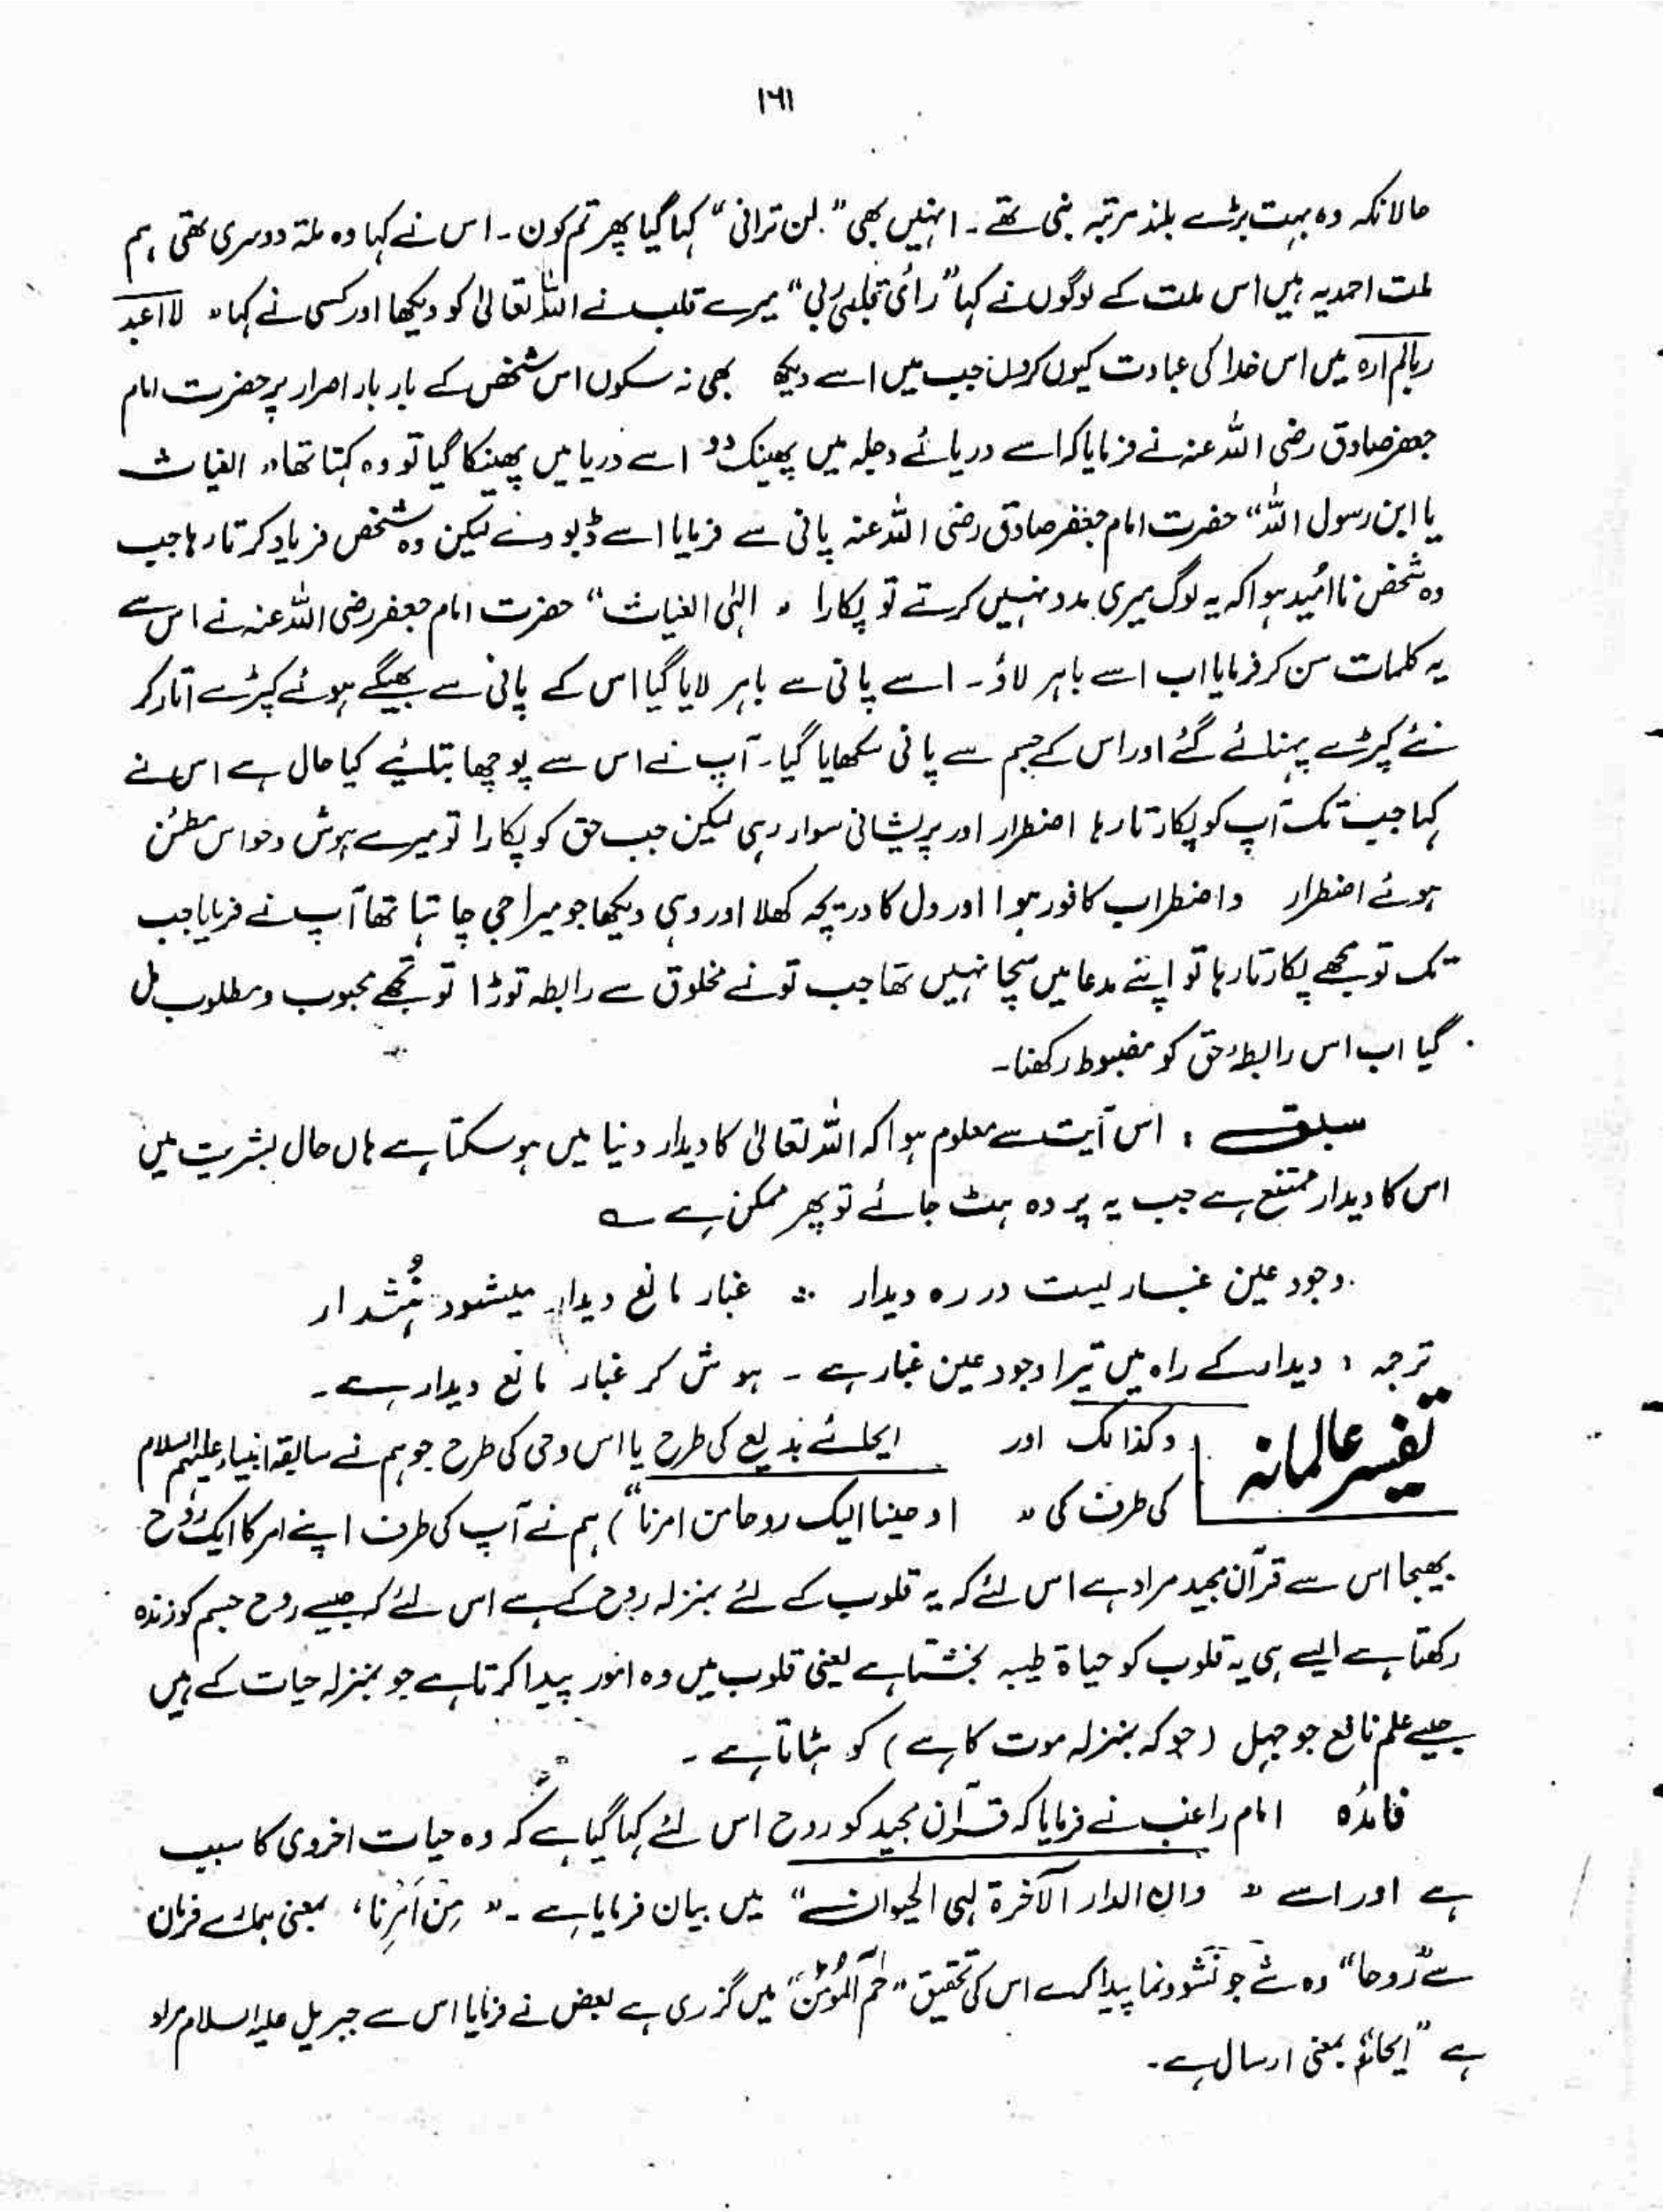 ۱۶۱
حالانکہ وہ بہت بڑے بلند مرتبہ نبی تھے۔ انہیں بھی ”لن ترانی“ کہا گیا پھر تم کون۔ اس نے کہا وہ ملۃ دوسری تھی ہم
ملت احمدیہ ہیں اس ملت کے لوگوں نے کہا ”رأی قلبی ربی“ میرے قلب نے اللہ تعالیٰ کو دیکھا اور کسی نے کہا ” لا اعبد
ربالم ارہ میں اس خدا کی عبادت کیوں کروں جب میں اسے دیکھ بھی نہ سکوں اس شخص کے بار بار اصرار پر حضرت امام
جعفر صادق رضی اللہ عنہ نے فرمایا کہ اسے دریائے دجلہ میں پھینک دو اسے دریا میں پھینکا گیا تو وہ کہتا تھا ” الغیاث
یا ابن رسول اللہ“ حضرت امام جعفر صادق رضی اللہ عنہ پانی سے فرمایا اسے ڈبو دے لیکن وہ شخص فریاد کرتا رہا جب
وہ شخص نا اُمید ہوا کہ یہ لوگ میری مدد نہیں کرتے تو پکارا ” الہٰی الغیاث“ حضرت امام جعفر رضی اللہ عنہ نے اس سے
یہ کلمات سن کر فرمایا اب اسے باہر لاؤ۔ اسے پانی سے باہر لایا گیا اس کے پانی سے بھیگے ہوئے کپڑے اتار کر
نئے کپڑے پہنائے گئے اور اس کے جسم سے پانی سکھایا گیا۔ آپ نے اس سے پوچھا بتلائیے کیا حال ہے اس نے
کہا جب تک آپ کو پکارتا رہا اضطرار اور پریشانی سوار رہی لیکن جب حق کو پکارا تو میرے ہوش و حواس مطمئن
ہوئے اضطرار واضطراب کافور ہوا اور دل کا دریچہ کھلا اور وہی دیکھا جو میرا جی چاہتا تھا آپ نے فرمایا جب
تک تو مجھے پکارتا رہا تو اپنے مدعا میں سچا نہیں تھا جب تو نے مخلوق سے رابطہ توڑا تو تجھے محبوب و مطلوب مل
گیا اب اس رابطۂ حق کو مضبوط رکھنا۔
سبق : اس آیت سے معلوم ہوا کہ اللہ تعالیٰ کا دیدار دنیا میں ہو سکتا ہے ہاں حال بشریت میں
اس کا دیدار ممتنع ہے جب یہ پردہ ہٹ جائے تو پھر ممکن ہے ؎
وجود عین غباریست در رہ دیدار ∴ غبار مانع دیدار میشود ہُشدار
ترجمہ : دیدار کے راہ میں تیرا وجود عین غبار ہے۔ ہوش کر غبار مانع دیدار ہے۔
تفسیر عالمانہ
وکذالک اور ایحائے بدیع کی طرح یا اس وحی کی طرح جو ہم نے سابقہ انبیاء علیہم السلام
کی طرف کی ” اوحینا الیک روحا من امرنا“) ہم نے آپ کی طرف اپنے امر کا ایک رُوح
بھیجا اس سے قرآن مجید مراد ہے اس لئے کہ یہ قلوب کے لئے بمنزلہ روح کے ہے اس لئے کہ جیسے روح جسم کو زندہ
رکھتا ہے ایسے ہی یہ قلوب کو حیاۃ طیبہ بخشتا ہے یعنی قلوب میں وہ انور پیدا کرتا ہے جو بمنزلہ حیات کے ہیں
جیسے علم نافع جو جہل (جو کہ بمنزلہ موت کا ہے) کو ہٹاتا ہے۔
فائدہ امام راغب نے فرمایا کہ قرآن مجید کو روح اس لئے کہا گیا ہے کہ وہ حیات اخروی کا سبب
ہے اور اسے ” وان الدار الآخرۃ لہی الحیوان“ میں بیان فرمایا ہے۔” مِن اَمرِنا، بمعنی ہمارے فرمان
سے ”رُوحا“ وہ شے جو نشوونما پیدا کرے اس کی تحقیق ”حٰم المؤمن“ میں گزری ہے بعض نے فرمایا اس سے جبریل علیہ السلام مراد
ہے ”ایحاء بمعنی ارسال ہے۔